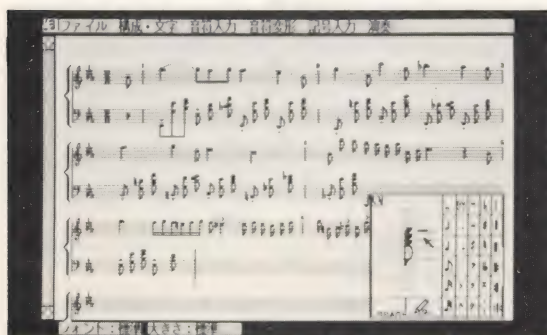 ファイル 構成・文字 音符入力 音符変形 記号入力 演奏
フォント:標準 大きさ:標準